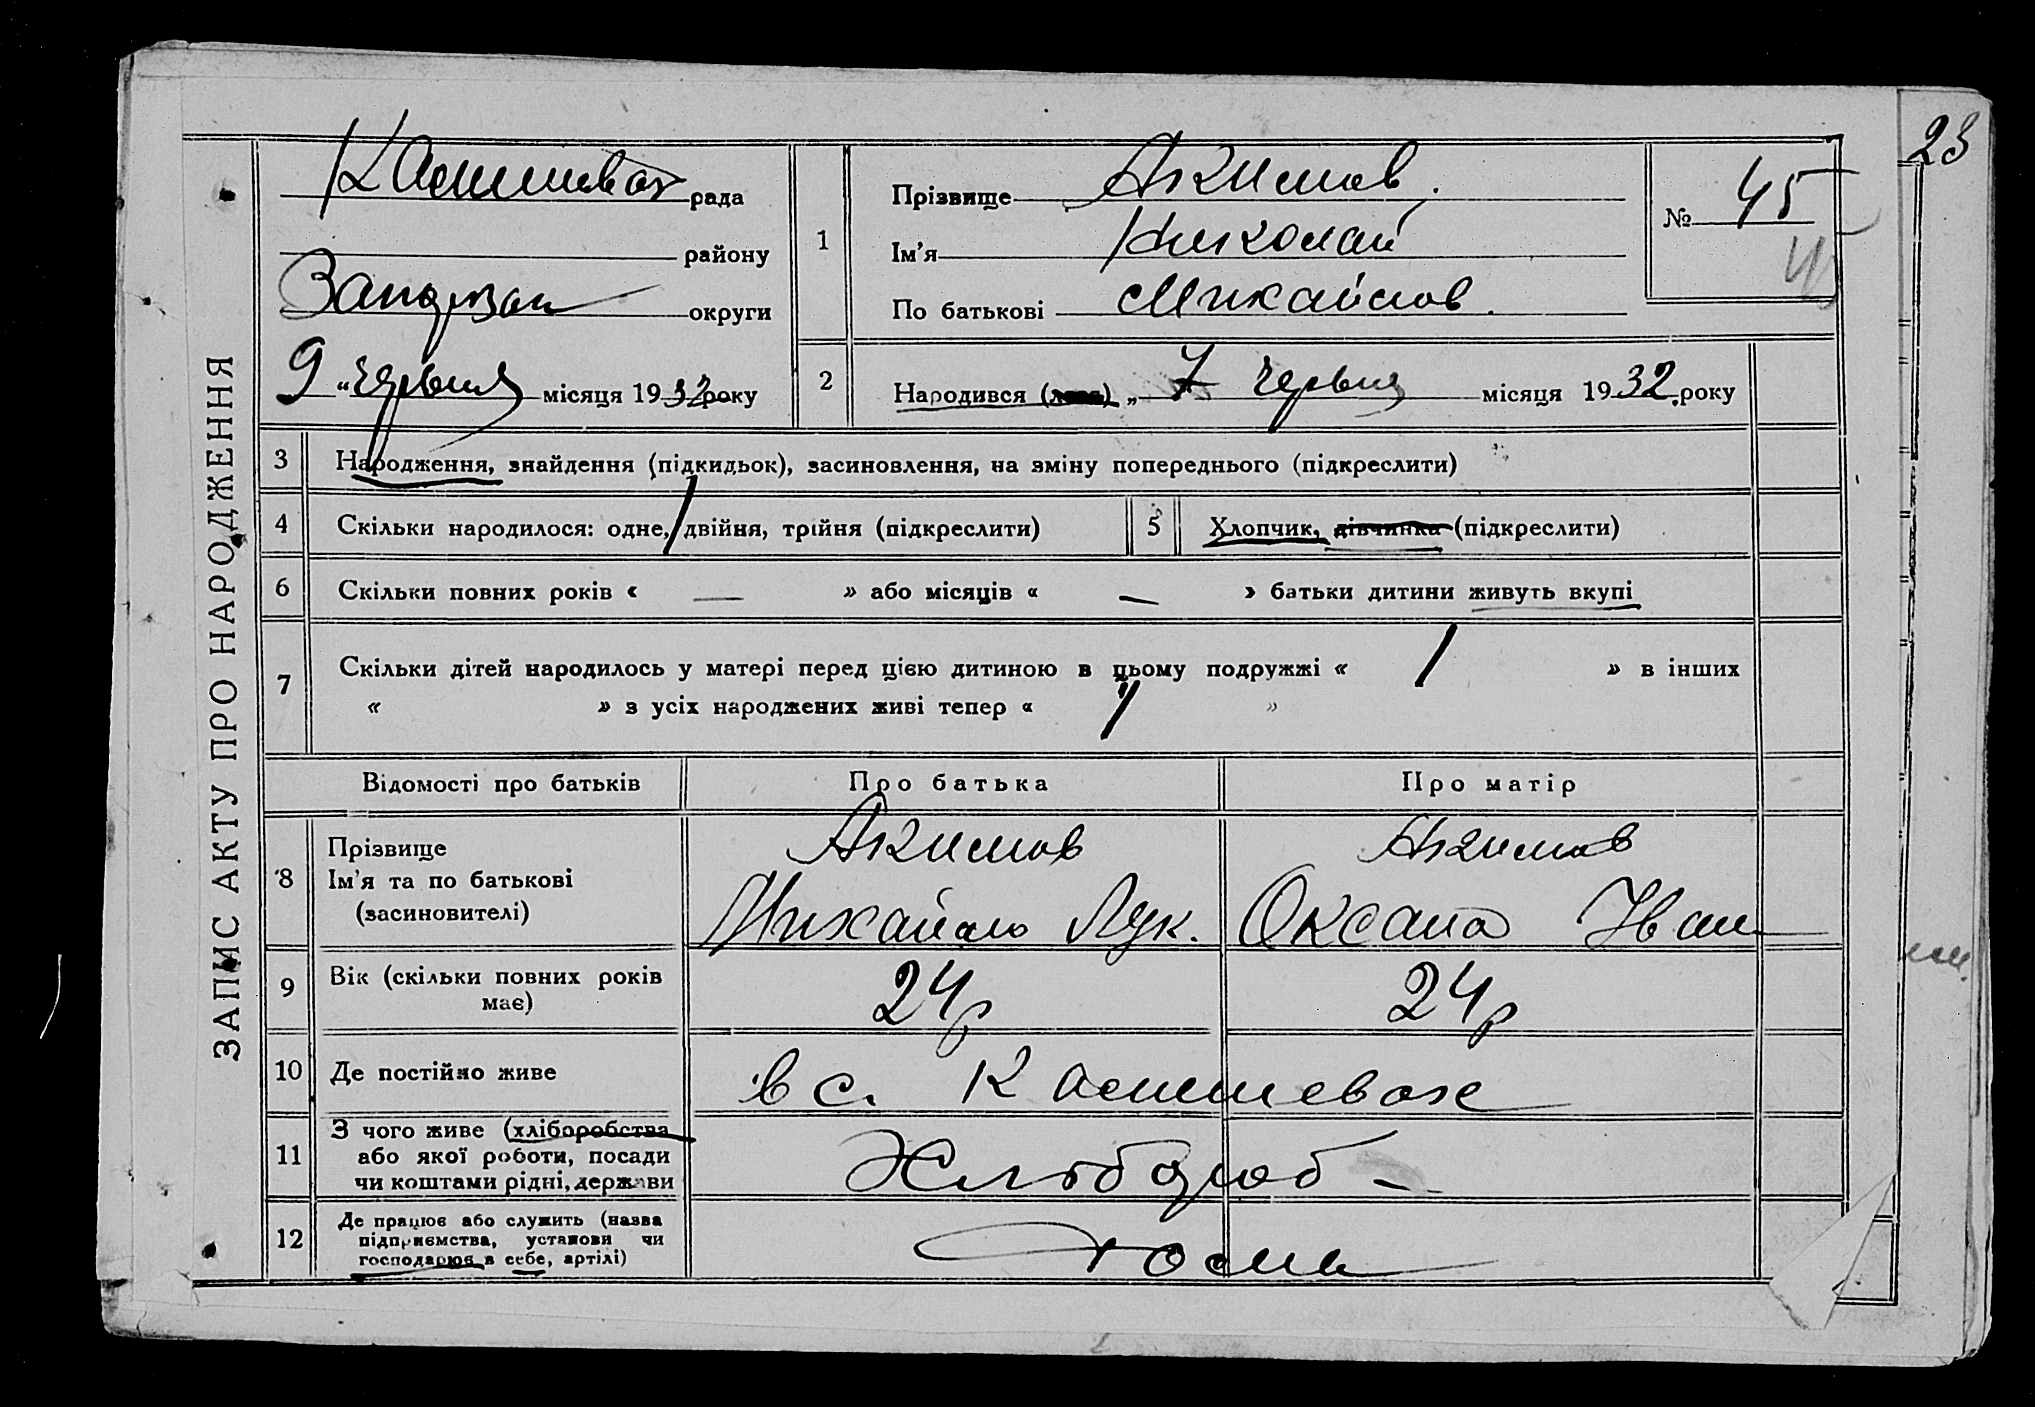 23
ЗАПИС АКТУ ПРО НАРОДЖЕННЯ
рада
району
округи
9 „ червня місяця 1932 року
1
Прізвище Акимов.
Ім'я Николай
По батькові Михайлов.
№ 45
45
2
Народився „ 7 червня місяця 1932 року
3
Народження, знайдення (підкидьок), засиновлення, на зміну попереднього (підкреслити)
4
Скільки народилося: одне, / двійня, трійня (підкреслити)
5
Хлопчик, дівчинка (підкреслити)
6
Скільки повних років « — » або місяців « — » батьки дитини живуть вкупі
7
Скільки дітей народилось у матері перед цією дитиною в цьому подружжі « 1 » в інших
« » з усіх народжених живі тепер « 1 »
Відомості про батьків
Про батька
Про матір
8
Прізвище
Ім'я та по батькові
(засиновителі)
Акимов
Михайло Лук.
Акимов
Оксана Іван
9
Вік (скільки повних років
має)
24р
24р
10
Де постійно живе
в с.
11
З чого живе (хліборобства
або якої роботи, посади
чи коштами рідні, держави
Хлібороб –
12
Де працює або служить (назва
підприємства, установи чи
господарює в себе, артілі)